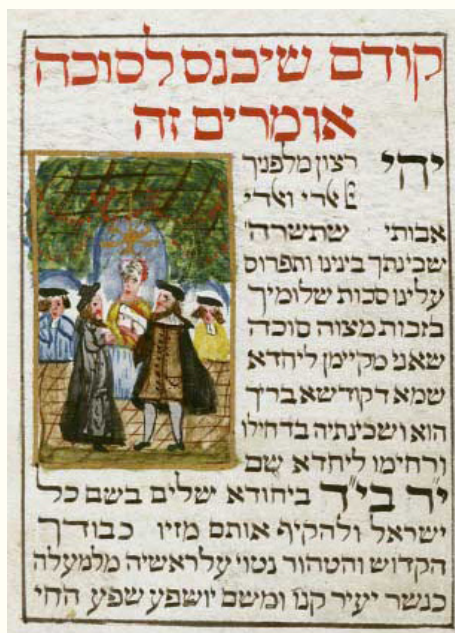 קודם שיכנס לסוכה
אומרים זה
יהי רצון מלפניך
ﭏדי וﭏדי
אבותי שתשרה
שכינתך בינינו ותפרוס
עלינו סכות שלומיך
בזכות מצוה סוכה
שאני מקיימן ליחדא
שמא דקודשא בריך
הוא ושכינתיה בדחילו
ורחימו ליחדא שם
י"ד בי"ד ביחודא שלים בשם כל
ישראל ולהקיף אותם מזיו כבודך
הקדוש והטהור נטוי על ראשיה מלמעלה
כנשר יעיר קנו ומשם יושפע שפע החי